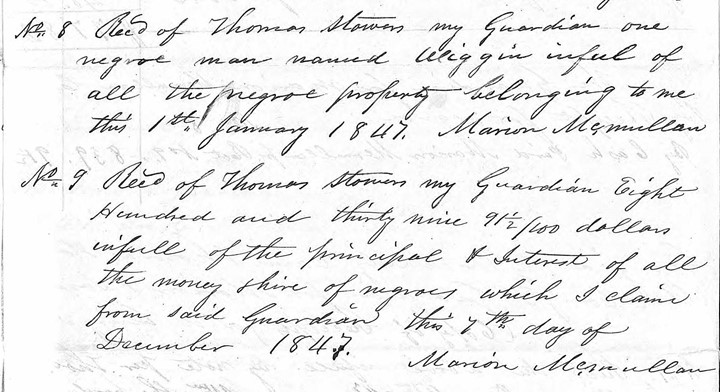 No. 8 Recd of Thomas Stowers my Guardian one
negroe man named Wiggin inful of
all the negroe property belonging to me
this 1th January 1847. Marion Mcmullan
No. 9 Recd of Thomas Stowers my Guardian Eight
Hundred and thirty nine 91½/100 dollars
infull of the principal & Interest of all
the money shire of negroes which I claim
from said Guardian this 7th day of
December 1847.
Marion Mcmullan